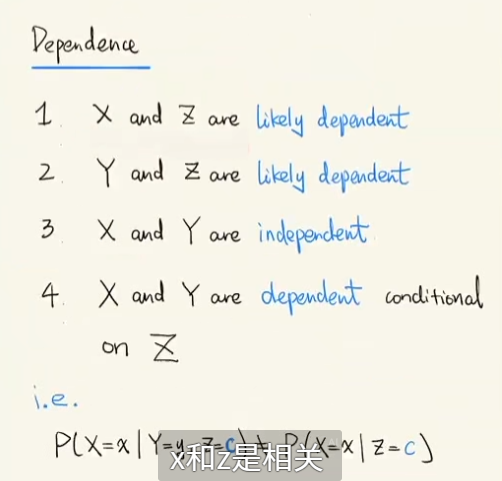 Dependence
1. X and Z are likely dependent
2. Y and Z are likely dependent
3 X and Y are independent
4. X and Y are dependent conditional
on Z
i.e.
P(X=x|Y=y, Z=c) ≠ P(X=x|Z=c)
x和z是相关